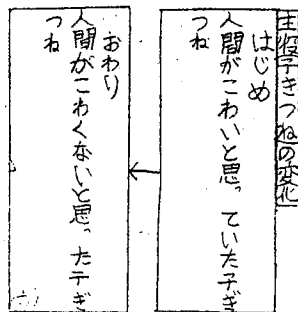 主役子ぎつねの変化
はじめ
人間がこわいと思っていた子ぎ
つね
おわり
人間がこわくないと思った子ぎ
つね